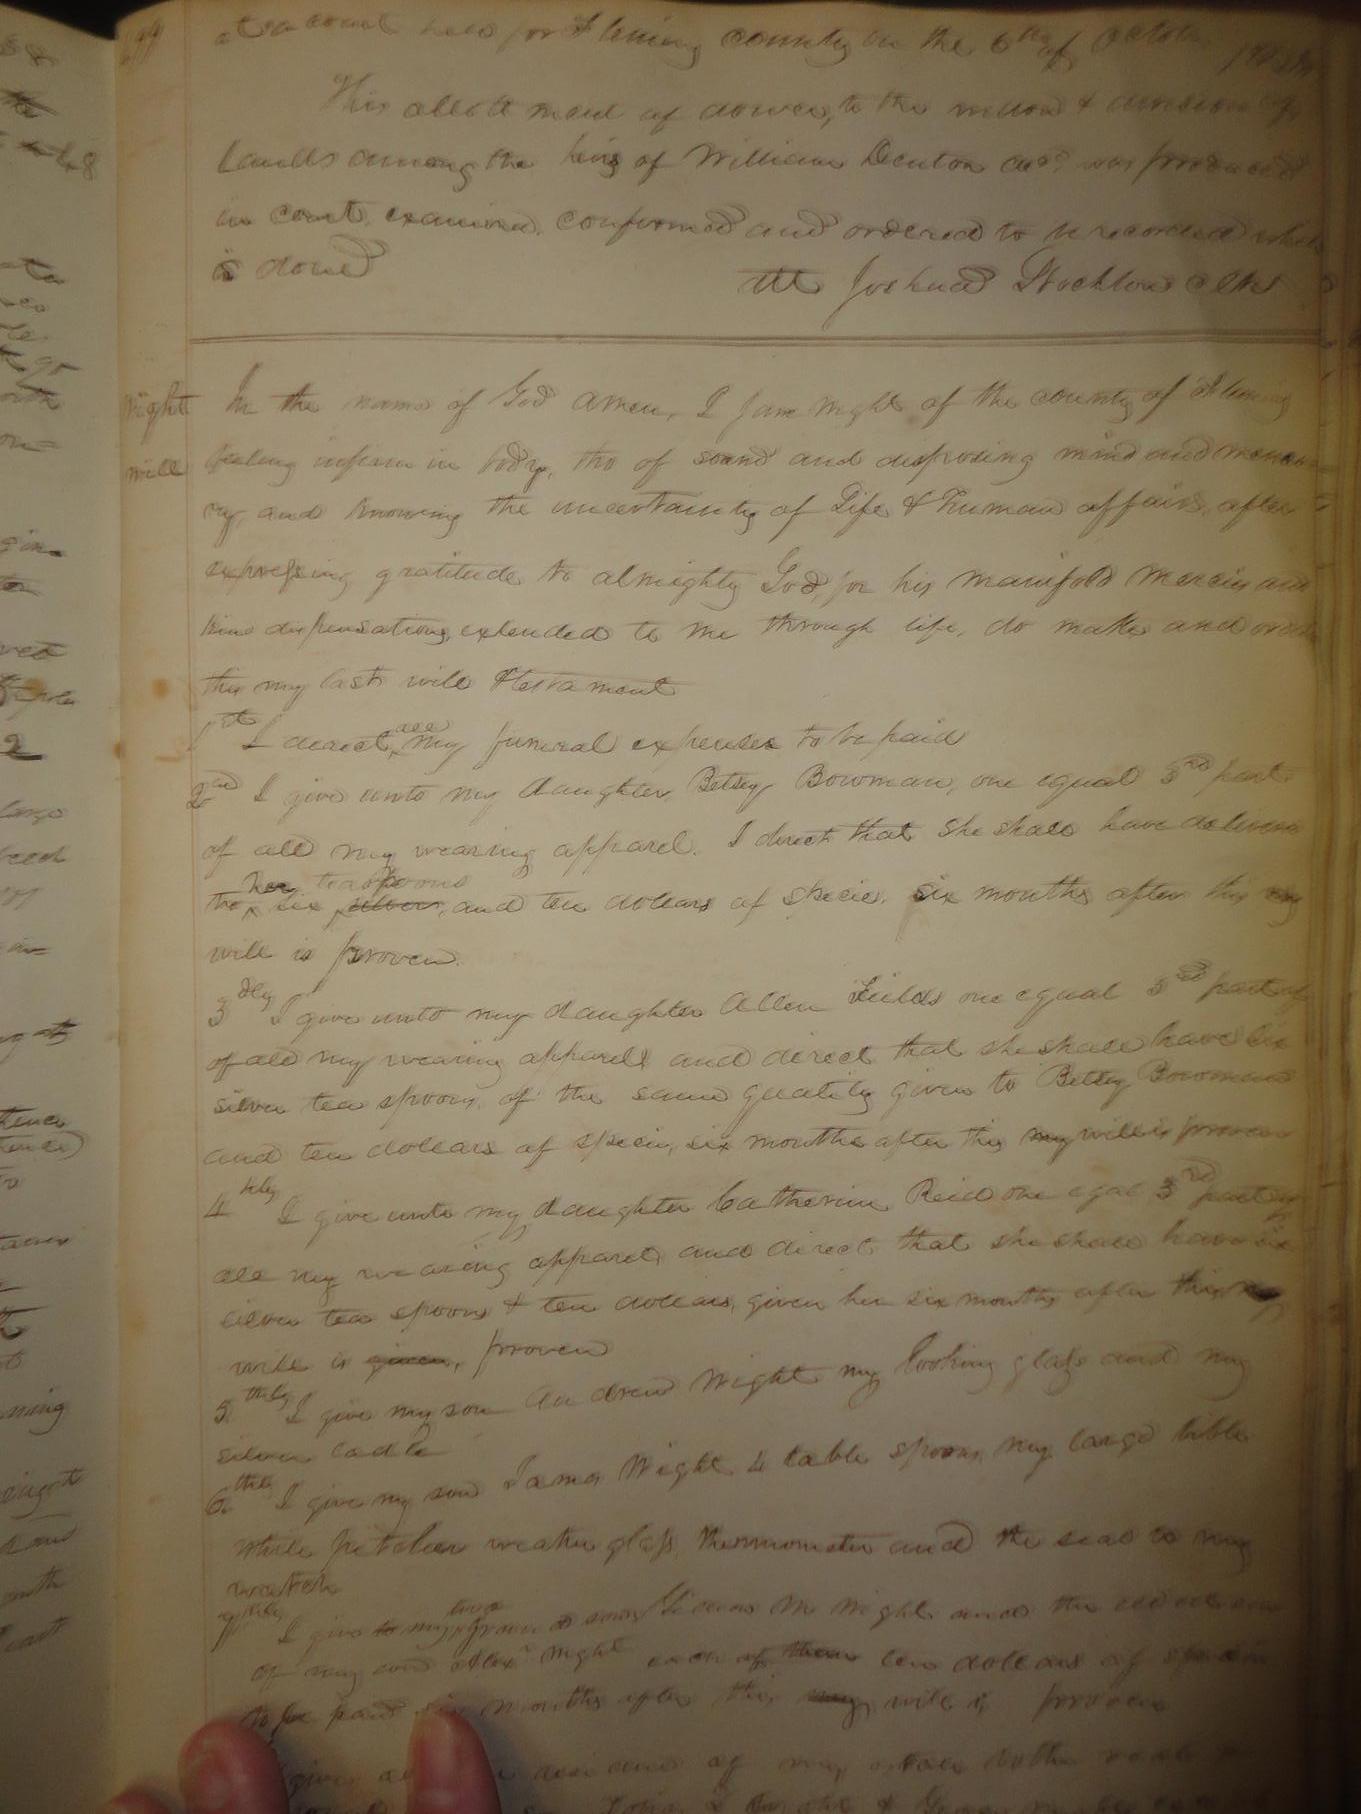 at a court held for Fleming county on the 6th of October
This allottment of dower, to the widow & division of
Lands among the heirs of William Denton decd. was produced
in court, examined, confirmed and ordered to be recorded which
is done
Att Joshua Stockton Clk
Wight In the name of God amen, I Jane Wight of the county of Fleming
will feeling infirm in body, tho of sound and disposing mind and memo
ry, and knowing the uncertainty of Life & human affairs, after
expressing gratitude to almighty God, for his manifold mercies and
kind dispensations, extended to me through life, do make and ordain
this my last will & testament
1st I direct, all my funeral expenses to be paid
2nd I give unto my daughter Betsey Bowman, one equal 3rd part
of all my wearing apparel. I direct that she shall have delivered
to her six silver, teaspoons and ten dollars of specie, six months after this my
will is proven.
3dly I give unto my daughter Allen Fields one equal 3rd part of
of all my wearing apparell and direct that she shall have six
silver tea spoons, of the same quality given to Betsey Bowman
and ten dollars of specie, six months after this my will is proven
4thly I give unto my daughter Catherine Reid one eqal 3rd part of
all my wearing apparel, and direct that she shall have six
silver tea spoons & ten dollars, given her six months after this my
will is given, proven
5thly I give my son Andrew Wight my looking glass and my
silver ladle
6thly I give my son James Wight 4 table spoons, my large bible
white pitcher weather glass, thermometer and the seal to my
watch
7thly I give to my two grand sons M Wight and the
of my son Alexr Wight each of them ten dollars of specie
to be paid six months after this my will is proven
give of my estate both real